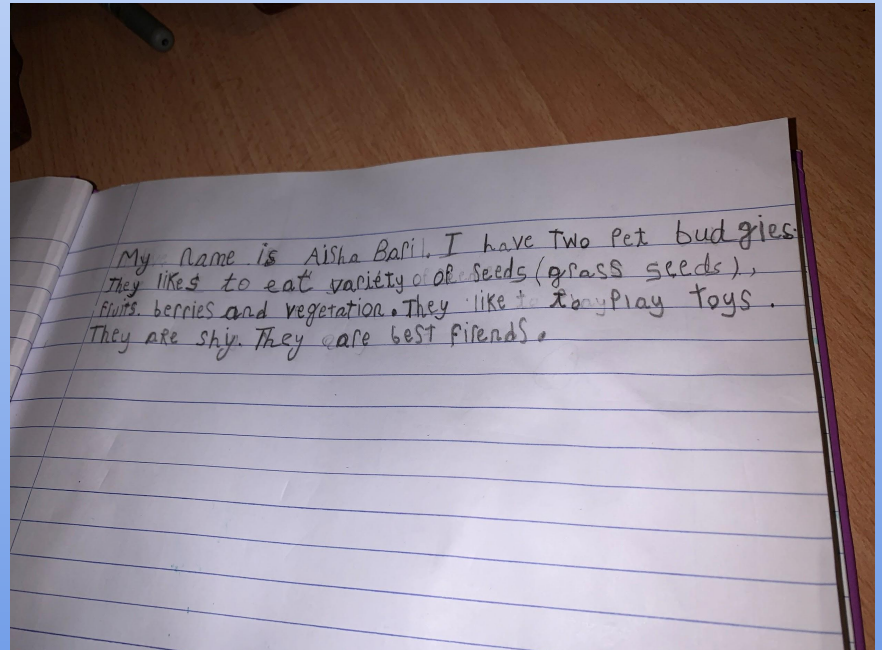 My name is Aisha Bafil. I have Two Pet budgies.
They likes to eat variety of seeds (grass seeds),
fruits. berries and vegetation. They like to Play toys.
They are shy. They are best firends.